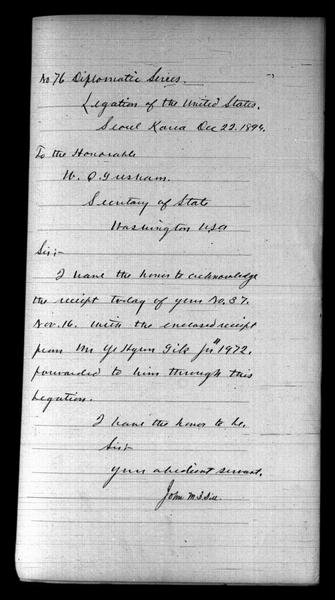 No. 76 Diplomatic Series.
Legation of the United States.
Seoul Korea Dec 22. 1894.
To the Honorable
W. Q. Gresham.
Secretary of State
Washington USA
Sir:-
I have the honor to acknowledge
the receipt today of your No. 37.
Nov. 16. with the enclosed receipt
from Mr Ye Hyun
forwarded to him through this
Legation.
I have the honor to be.
Sir:
your obedient servant.
John M. B. Sill